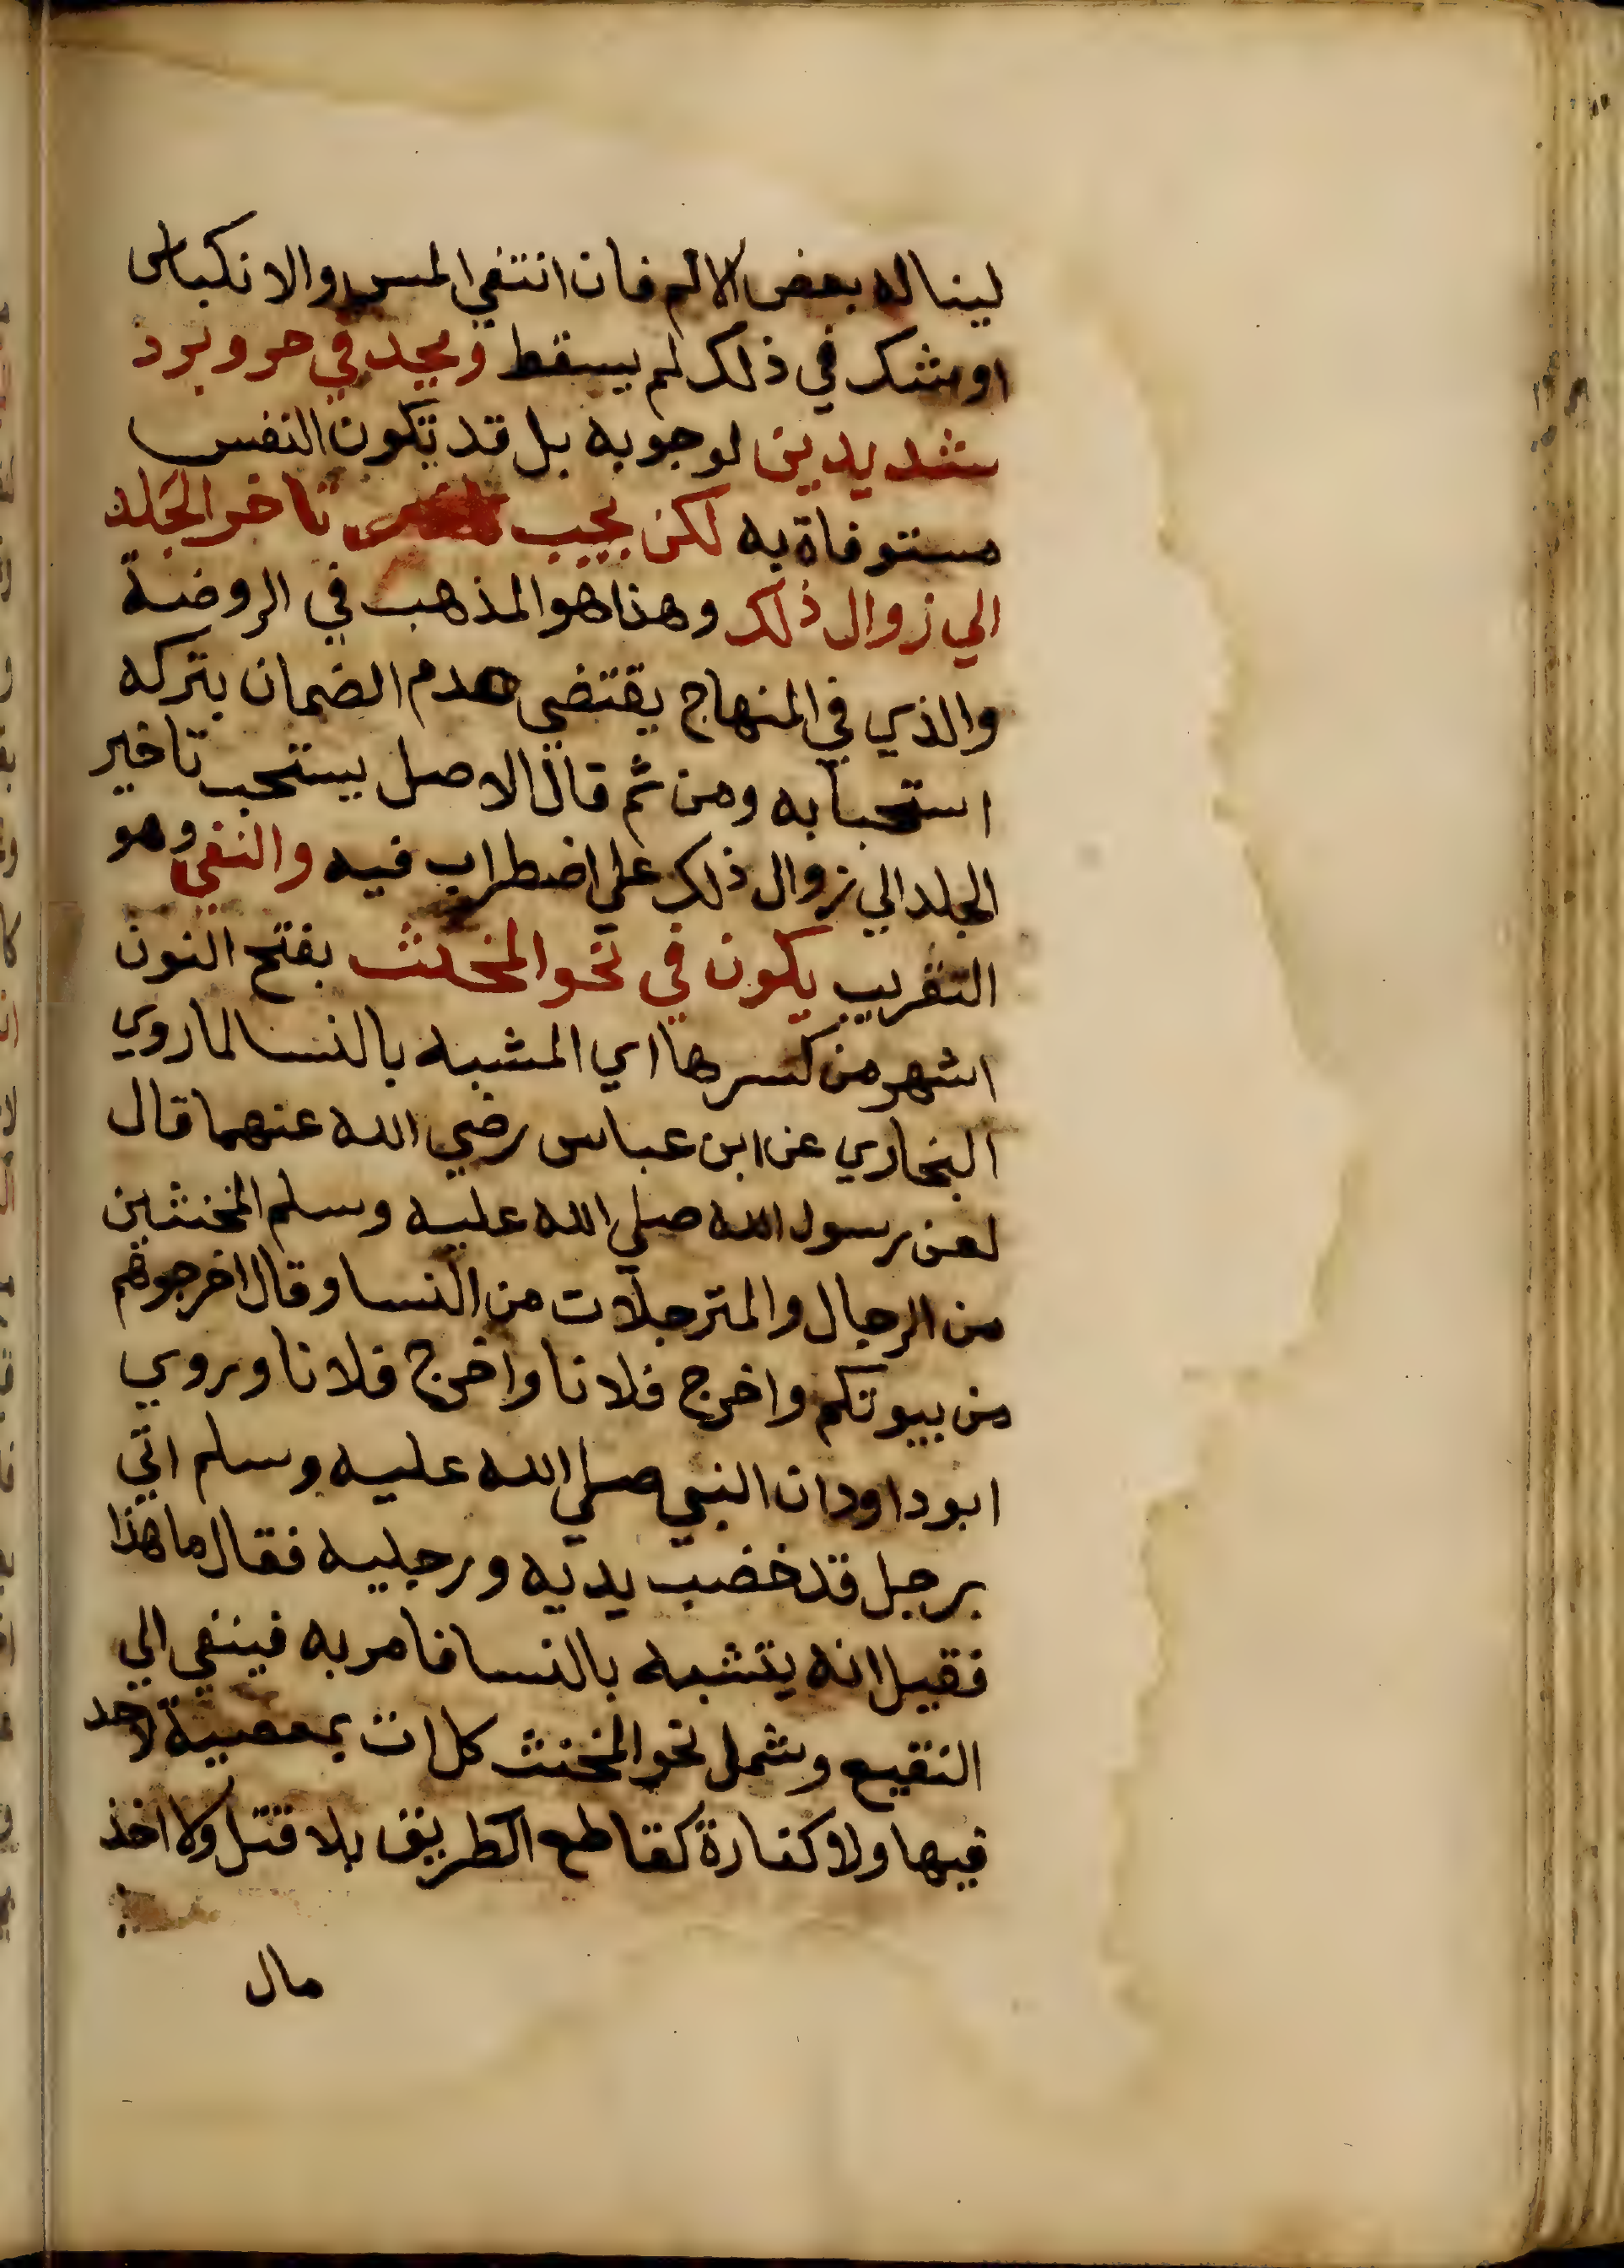 ليناله بعض الالم فان انتفي المس والانكباس
او شك في ذلك لم يسقط ويحد في حر وبرد
شديدين لوجوبه بل قد تكون النفس
مستوفاة به لكن يجب تاخر الجلد
الي زوال ذلك وهذا هو المذهب في الروضة
والذي في المنهاج يقتضي عدم الضمان بتركه
استحبابه ومن ثم قال الاصل يستحب تاخير
الجلد الي زوال ذلك علي اضطراب فيه والنفي وهو
التغريب يكون في نحو المخنث بفتح النون
اشهر من كسرها اي المشبه بالنسا لما روي
البخاري عن ابن عباس رضي الله عنهما قال
لعن رسول الله صلي الله عليه وسلم المخنثين
من الرجال والمترجلات من النسا وقال اخرجوهم
من بيوتكم واخرج فلانا واخرج فلانا وروي
ابو داود ان النبي صلي الله عليه وسلم اتي
برجل قد خضب يديه ورجليه فقال ما هذا
فقيل انه يتشبه بالنسا فامر به فينفي الي
النقيع وشمل نحو المخنث كل ات بمعصية لاحد
فيها ولا كفارة كقاطع الطريق بلا قتل ولا اخذ
مال